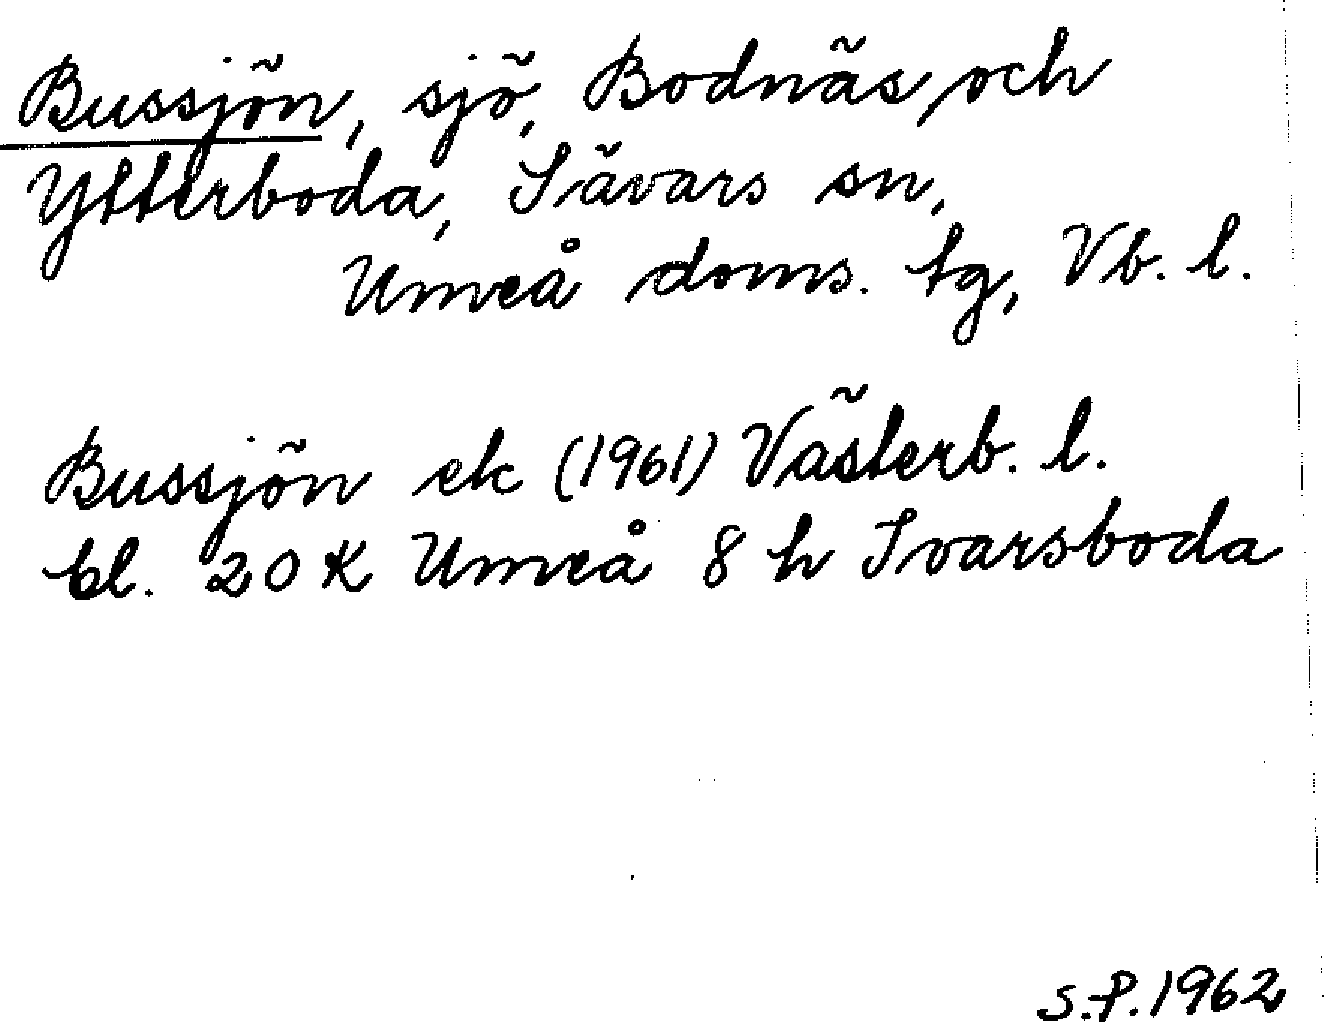 Bussjön, sjö, Bodnäs och
Ytterboda, Sävars sn,
Umeå doms. tg, Vb. l.
Bussjön ek (1961) Västerb. l.
bl. 20 K Umeå 8 h Ivarsboda
S.P. 1962